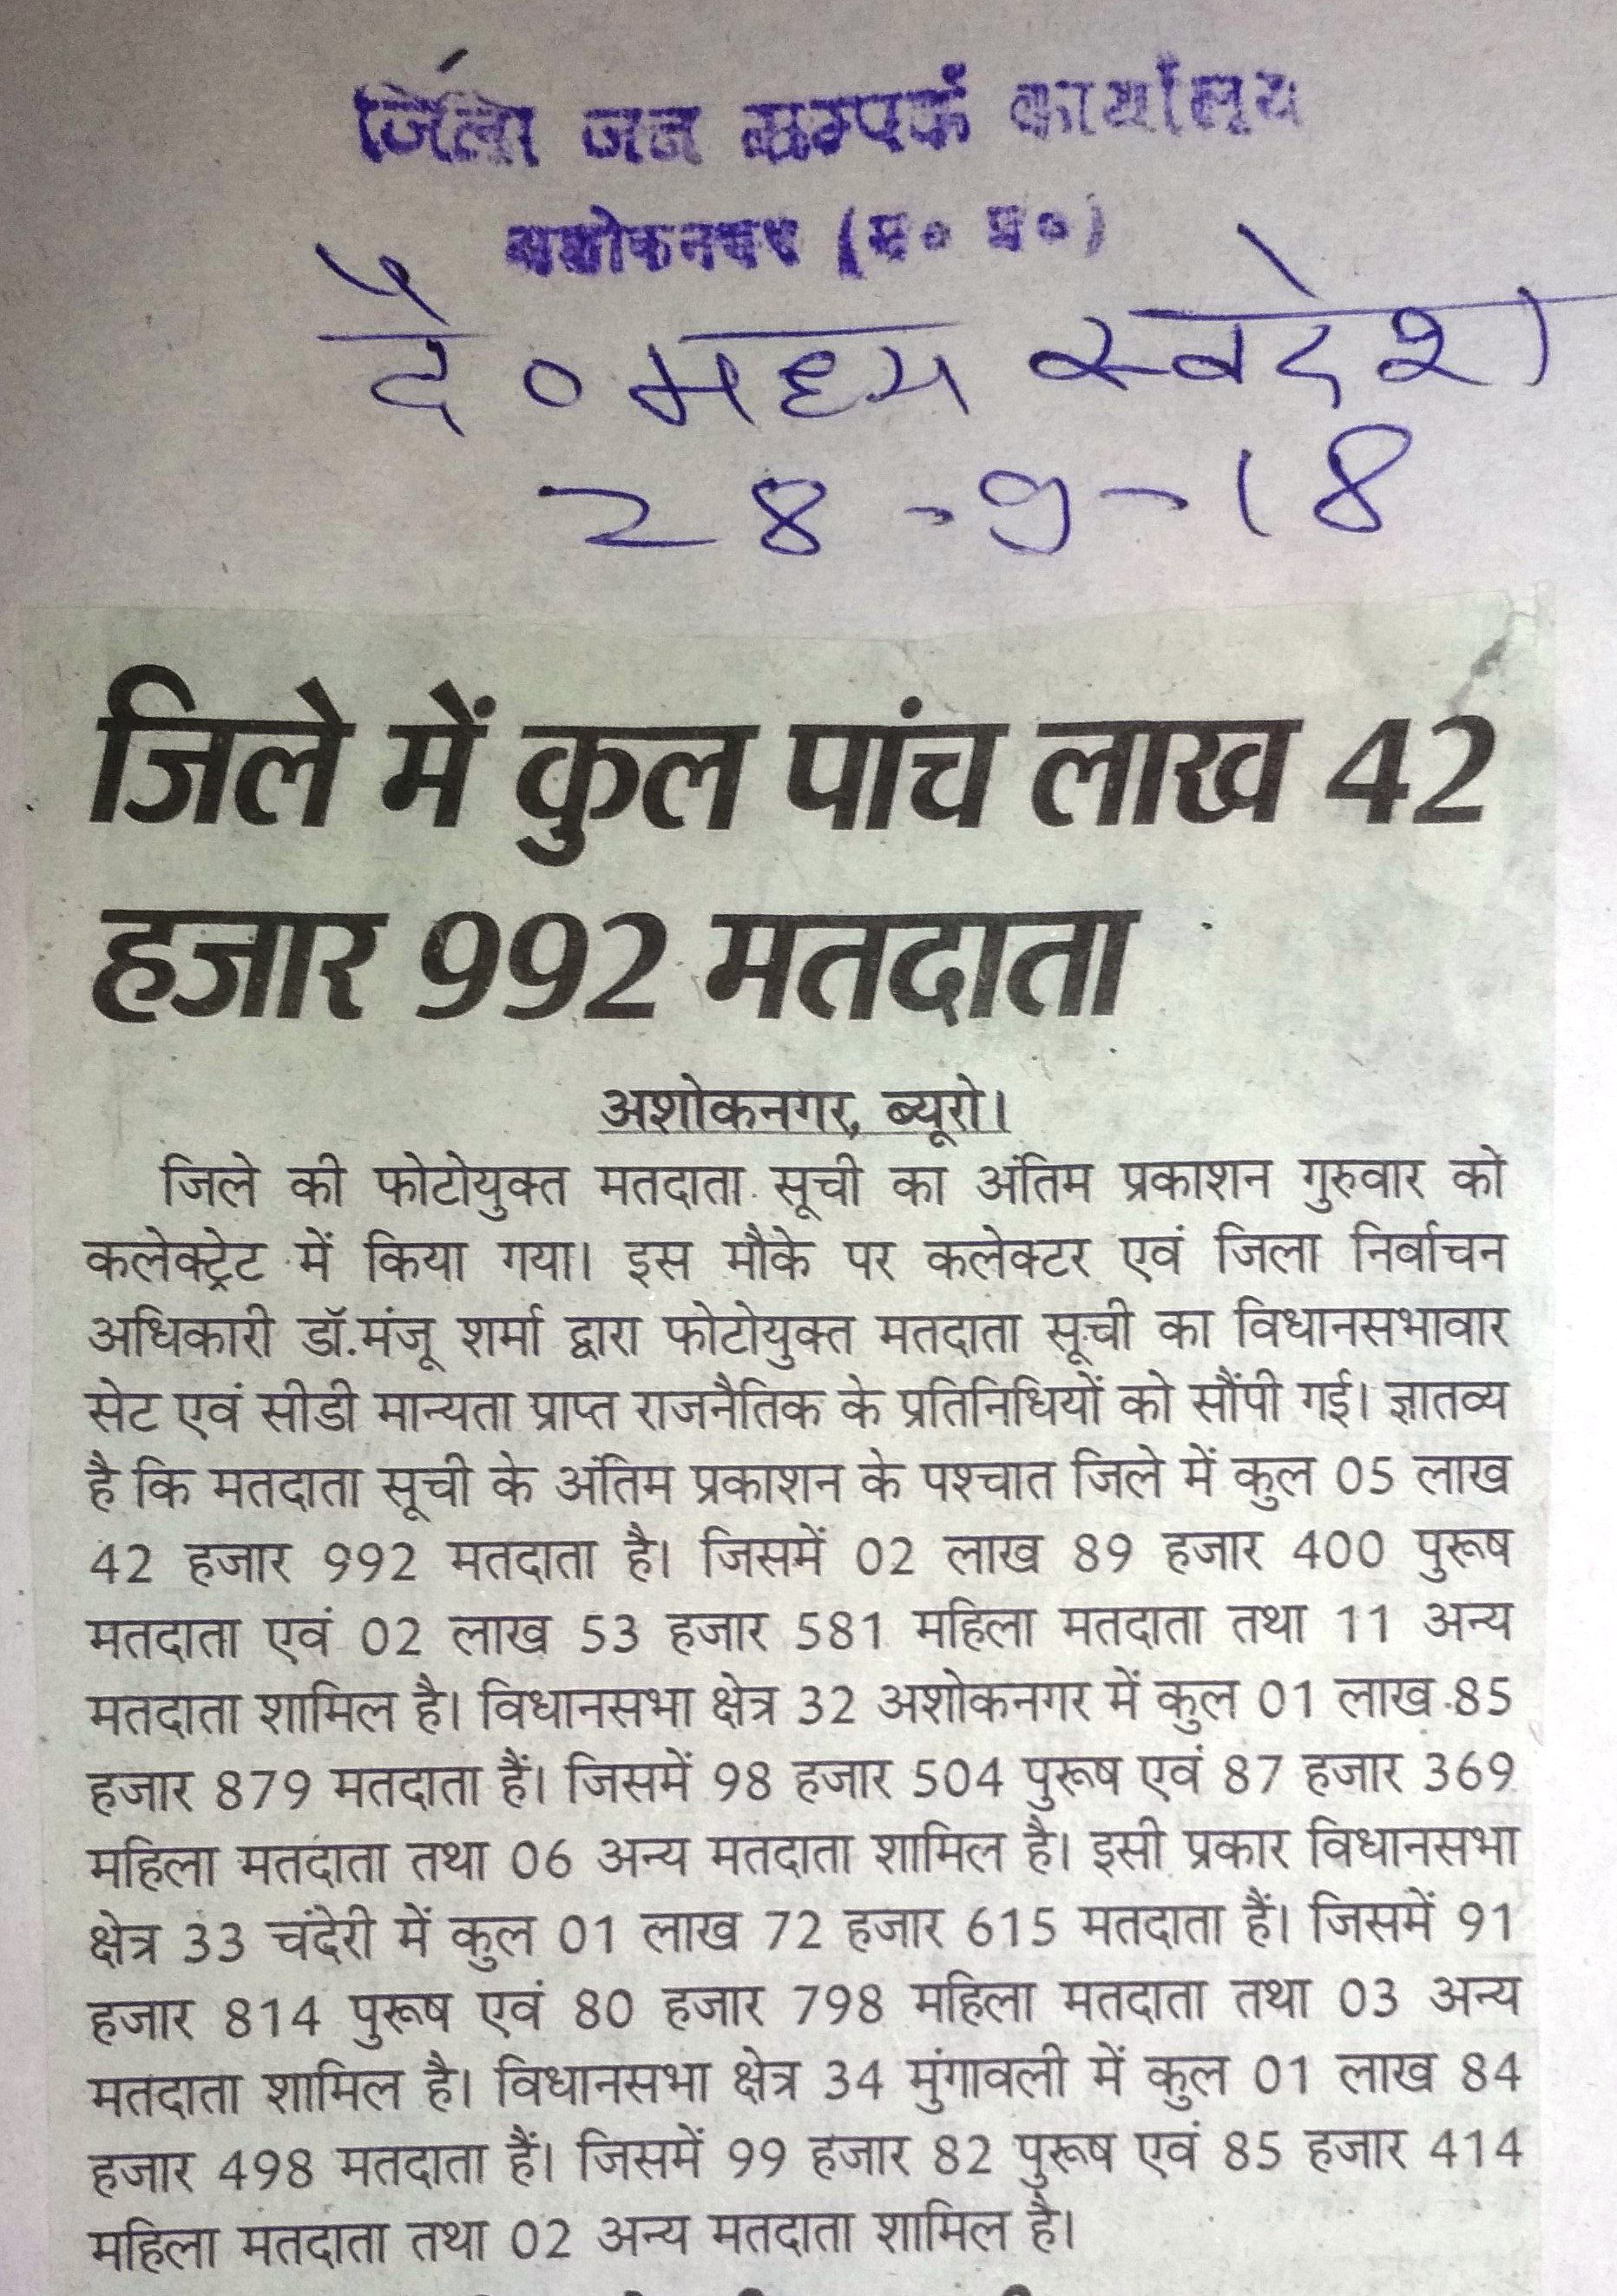 जिला जन सम्पर्क कार्यालय
अशोकनगर (म० प्र०)
दै० मध्य स्वदेश
28-9-18
जिले में कुल पांच लाख 42
हजार 992 मतदाता
अशोकनगर, ब्यूरो।
जिले की फोटोयुक्त मतदाता सूची का अंतिम प्रकाशन गुरुवार को
कलेक्ट्रेट में किया गया। इस मौके पर कलेक्टर एवं जिला निर्वाचन
अधिकारी डॉ.मंजू शर्मा द्वारा फोटोयुक्त मतदाता सूची का विधानसभावार
सेट एवं सीडी मान्यता प्राप्त राजनैतिक के प्रतिनिधियों को सौंपी गई। ज्ञातव्य
है कि मतदाता सूची के अंतिम प्रकाशन के पश्चात जिले में कुल 05 लाख
42 हजार 992 मतदाता है। जिसमें 02 लाख 89 हजार 400 पुरूष
मतदाता एवं 02 लाख 53 हजार 581 महिला मतदाता तथा 11 अन्य
मतदाता शामिल है। विधानसभा क्षेत्र 32 अशोकनगर में कुल 01 लाख 85
हजार 879 मतदाता हैं। जिसमें 98 हजार 504 पुरूष एवं 87 हजार 369
महिला मतदाता तथा 06 अन्य मतदाता शामिल है। इसी प्रकार विधानसभा
क्षेत्र 33 चंदेरी में कुल 01 लाख 72 हजार 615 मतदाता हैं। जिसमें 91
हजार 814 पुरूष एवं 80 हजार 798 महिला मतदाता तथा 03 अन्य
मतदाता शामिल है। विधानसभा क्षेत्र 34 मुंगावली में कुल 01 लाख 84
हजार 498 मतदाता हैं। जिसमें 99 हजार 82 पुरूष एवं 85 हजार 414
महिला मतदाता तथा 02 अन्य मतदाता शामिल है।